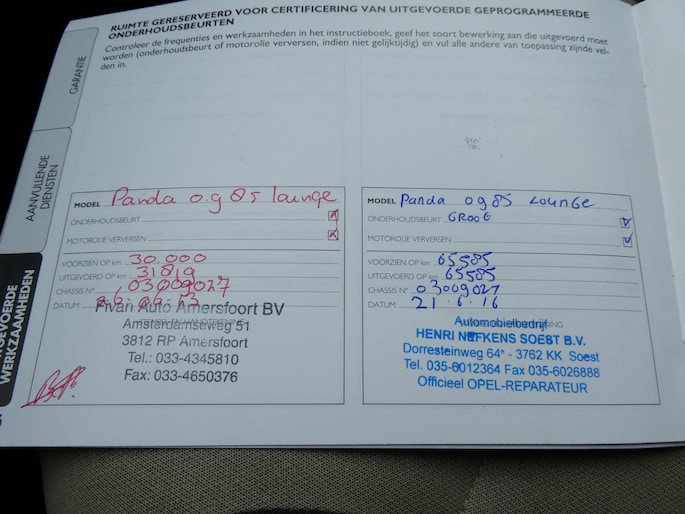 RUIMTE GERESERVEERD VOOR CERTIFICERING VAN UITGEVOERDE GEPROGRAMMEERDE
ONDERHOUDSBEURTEN
Controleer de frequenties en werkzaamheden in het instructieboek, geef het soort bewerking aan die uitgevoerd moet
worden (onderhoudsbeurt of motorolie verversen, indien niet gelijktijdig) en vul alle andere van toepassing zijnde vel-
den in.
GARANTIE
AANVULLENDE
DIENSTEN
UITGEVOERDE
WERKZAAMHEDEN
MODEL Panda 0.9 85 lounge
ONDERHOUDSBEURT
MOTOROLIE VERVERSEN
VOORZIEN OP km 30.000
UITGEVOERD OP km 31819
CHASSIS N° 03009027
DATUM
Pivan Auto Amersfoort BV
Amsterdamseweg 51
3812 RP Amersfoort
Tel.: 033-4345810
Fax: 033-4650376
MODEL Panda 0985 LOUNGE
ONDERHOUDSBEURT GROOt
MOTOROLIE VERVERSEN
VOORZIEN OP km 65585
UITGEVOERD OP km 65585
CHASSIS N° 03009027
DATUM 21.6.16
Automobielbedrijf
HENRI NEFKENS SOEST B.V.
Dorresteinweg 64ᵃ - 3762 KK Soest
Tel. 035-6012364 Fax 035-6026888
Officieel OPEL-REPARATEUR